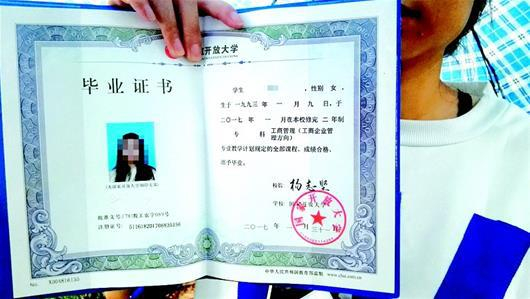 家开放大学
毕业证书
学生 ，性别 女，
生于一九九三年 一 月 九 日，于
二〇一七 年 一 月在本校修完 二 年制
专 科 工商管理（工商企业管理方向）
专业教学计划规定的全部课程，成绩合格，
准予毕业。
校长：
学校：国家开放大学
二〇一七年 一 月 三十一 日
国家开放大学
注册证号：511618201706835456
No.
中华人民共和国教育部监制